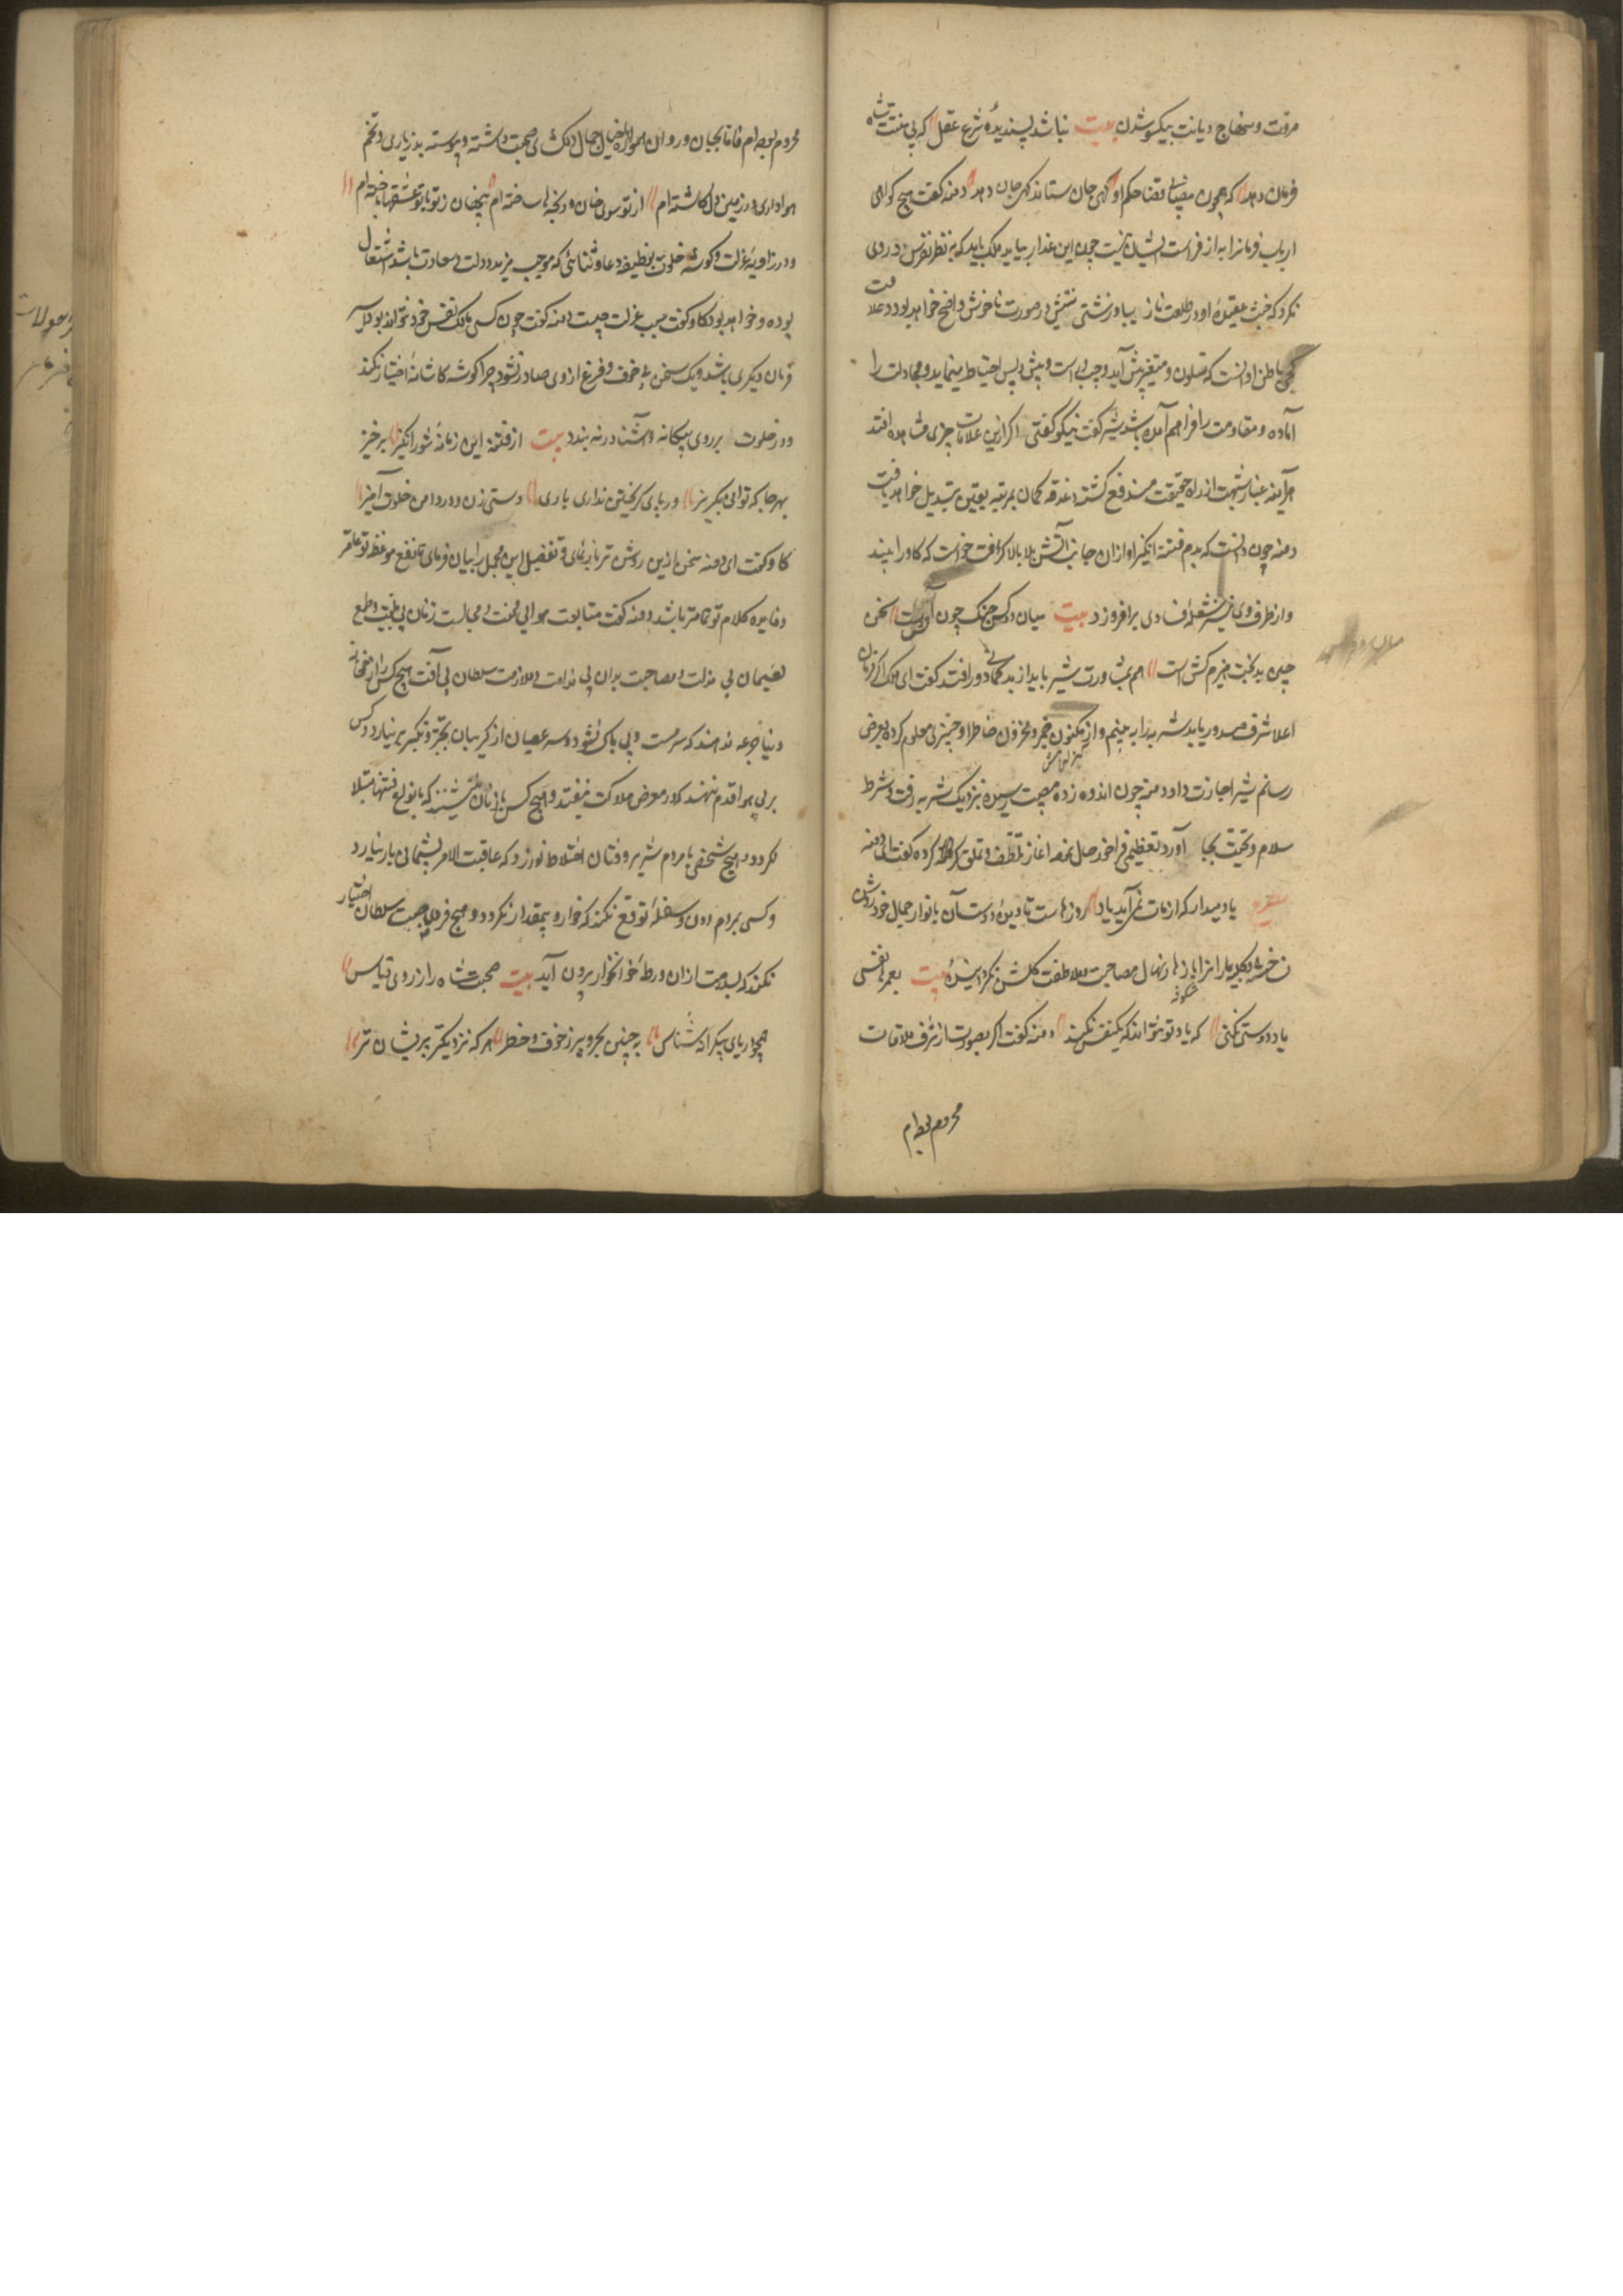 مروت و منهاج دیانت بیکسو شدن بیت نباشد پسندیدهٔ شرع عقل که بی بینت شاه
فرمان دهد که همچون مضای قضا حکم او کهی جان ستاند کهی جان دهد دمنه کفت هیچ کواهی
ارباب فرمانرا به از فراست ایشان نیست چون این غدار بیاید ملک باید که به نظر تفرس در روی
نکرد که خبث عقیدهٔ او در طلعت نازیبا و زشتی نیتش در صورت ناخوش واضح خواهد بود و علامت
کجی باطن او آنست که متلون و متغیر پیش آید و چپ و راست و پیش و پس احتیاط مینماید و مجادلت را
آماده و مقاومت را فراهم آمده باشد شیر کفت نیکو کفتی اکر ازین علامات چیزی مشاهده افتد
هرآینه غبار شبهت از راه حقیقت مندفع کشته دغدغه کمان بمرتبه یقین تبدیل خواهد یافت
دمنه چون دانست که بدم فتنه انکیز او از ان جانب آتش بلا بالا کرفت خواست که کاو را ببیند
و از طرف وی نیز شعله فسادی برافروزد بیت میان دو کس جنک چون آتش است سخن
چین بدبخت هیزم کش است هم بمشاورت شیر باید از بد کمانی دور افتد کفت ای ملک اکر فرمان
اعلا شرف صدور یابد شنزبه را به بینم و از مکنون ضمیر و مخزون خاطر او چیزی معلوم کرده بعرض
رسانم شیر اجازت داد و دمنه چون اندوه زده مصیبت رسیده نزدیک شنزبه رفت و شرط
سلام و تحیت بجا آورد تعظیمی فراخور حال نموده اغاز تلطف و تملق کرده کفت ای دمنه
شعر یاد میدار که از مات نمی آید یاد روزهاست تا دیدهٔ دوستان بانوار جمال خود روشن
شکوفه مصاحبت و ملاطفت کلشن نکردانیدهٔ بیت بعمرها نفسی
یاد دوستی نکنی که یاد تو نتواند که یکنفس نکند دمنه کفت اکر بصورت از شرف ملاقات
محروم بوده ام
محروم بوده ام فاما بجان و روان همواره با خیال جمال صحبت داشته و پیوسته بذر یاری و تخم
هواداری در زمین دل کاشته ام از تو سوی جان دریچها ساخته ام پنهان ز تو با تو عشقها باخته ام
و در زاویهٔ عزلت و کوشهٔ خلوت بوظیفه دعا و ثنائی که موجب مزید دولت و سعادت باشد اشتغال
بوده و خواهد بود کاو کفت سبب عزلت چیست دمنه کفت چون کسی مالک نفس خود نتواند بود
فرمان دیکری باشد و یک سخن بی خوف و فزع از وی صادر نشود چرا کوشهٔ کاشانه اختیار نکند
و در خلوت بر روی بیکانه و آشنا در نه بندد بیت از فتنه این زمانهٔ شورانکیز برخیز
بهر جا که توانی بکریز ور پای کریختن نداری باری دستی زن و در دامن خلوت آمیز
کاو کفت ای دمنه سخن ازین روشن تر بایدنمای و تفصیل این مجمل را بیان فرمای تا نفع موعظه تو عامتر
و فایده کلام تو تمامتر باشد دمنه کفت متابعت هوا بی محنت و مجالست زنان بی بلیت و طمع
لئیمان بی مذلت و مصاحبت بدان بی ندامت و ملازمت سلطان بی آفت هیچ کس را از خمخانه
دنیا جرعه ندهند که سرمست و بی باک نشود و سر عصیان از کریبان تجبر و تکبر بر نیارد و کس
بر پی هوا قدم ننهد که در معرض هلاکت نیفتد و هیچ کس با زنان ننشیند که بانواع فتنها مبتلا
نکردد و هیچ شخص با مردم شریر و فتان اختلاط نورزد که عاقبت الامر پشیمانی بار نیارد
و کسی بمردم دون و سفله توقع نکند که خوار و بیمقدار نکردد و هیچ فرد صحبت سلطان اختیار
نکند که بسلامت از ان ورطهٔ خونخوار بیرون آید بیت صحبت شاه را ز روی قیاس
همچو دریای بیکرانه شناس به چنین بحر پر ز خوف و خطر هر که نزدیکتر پریشان تر